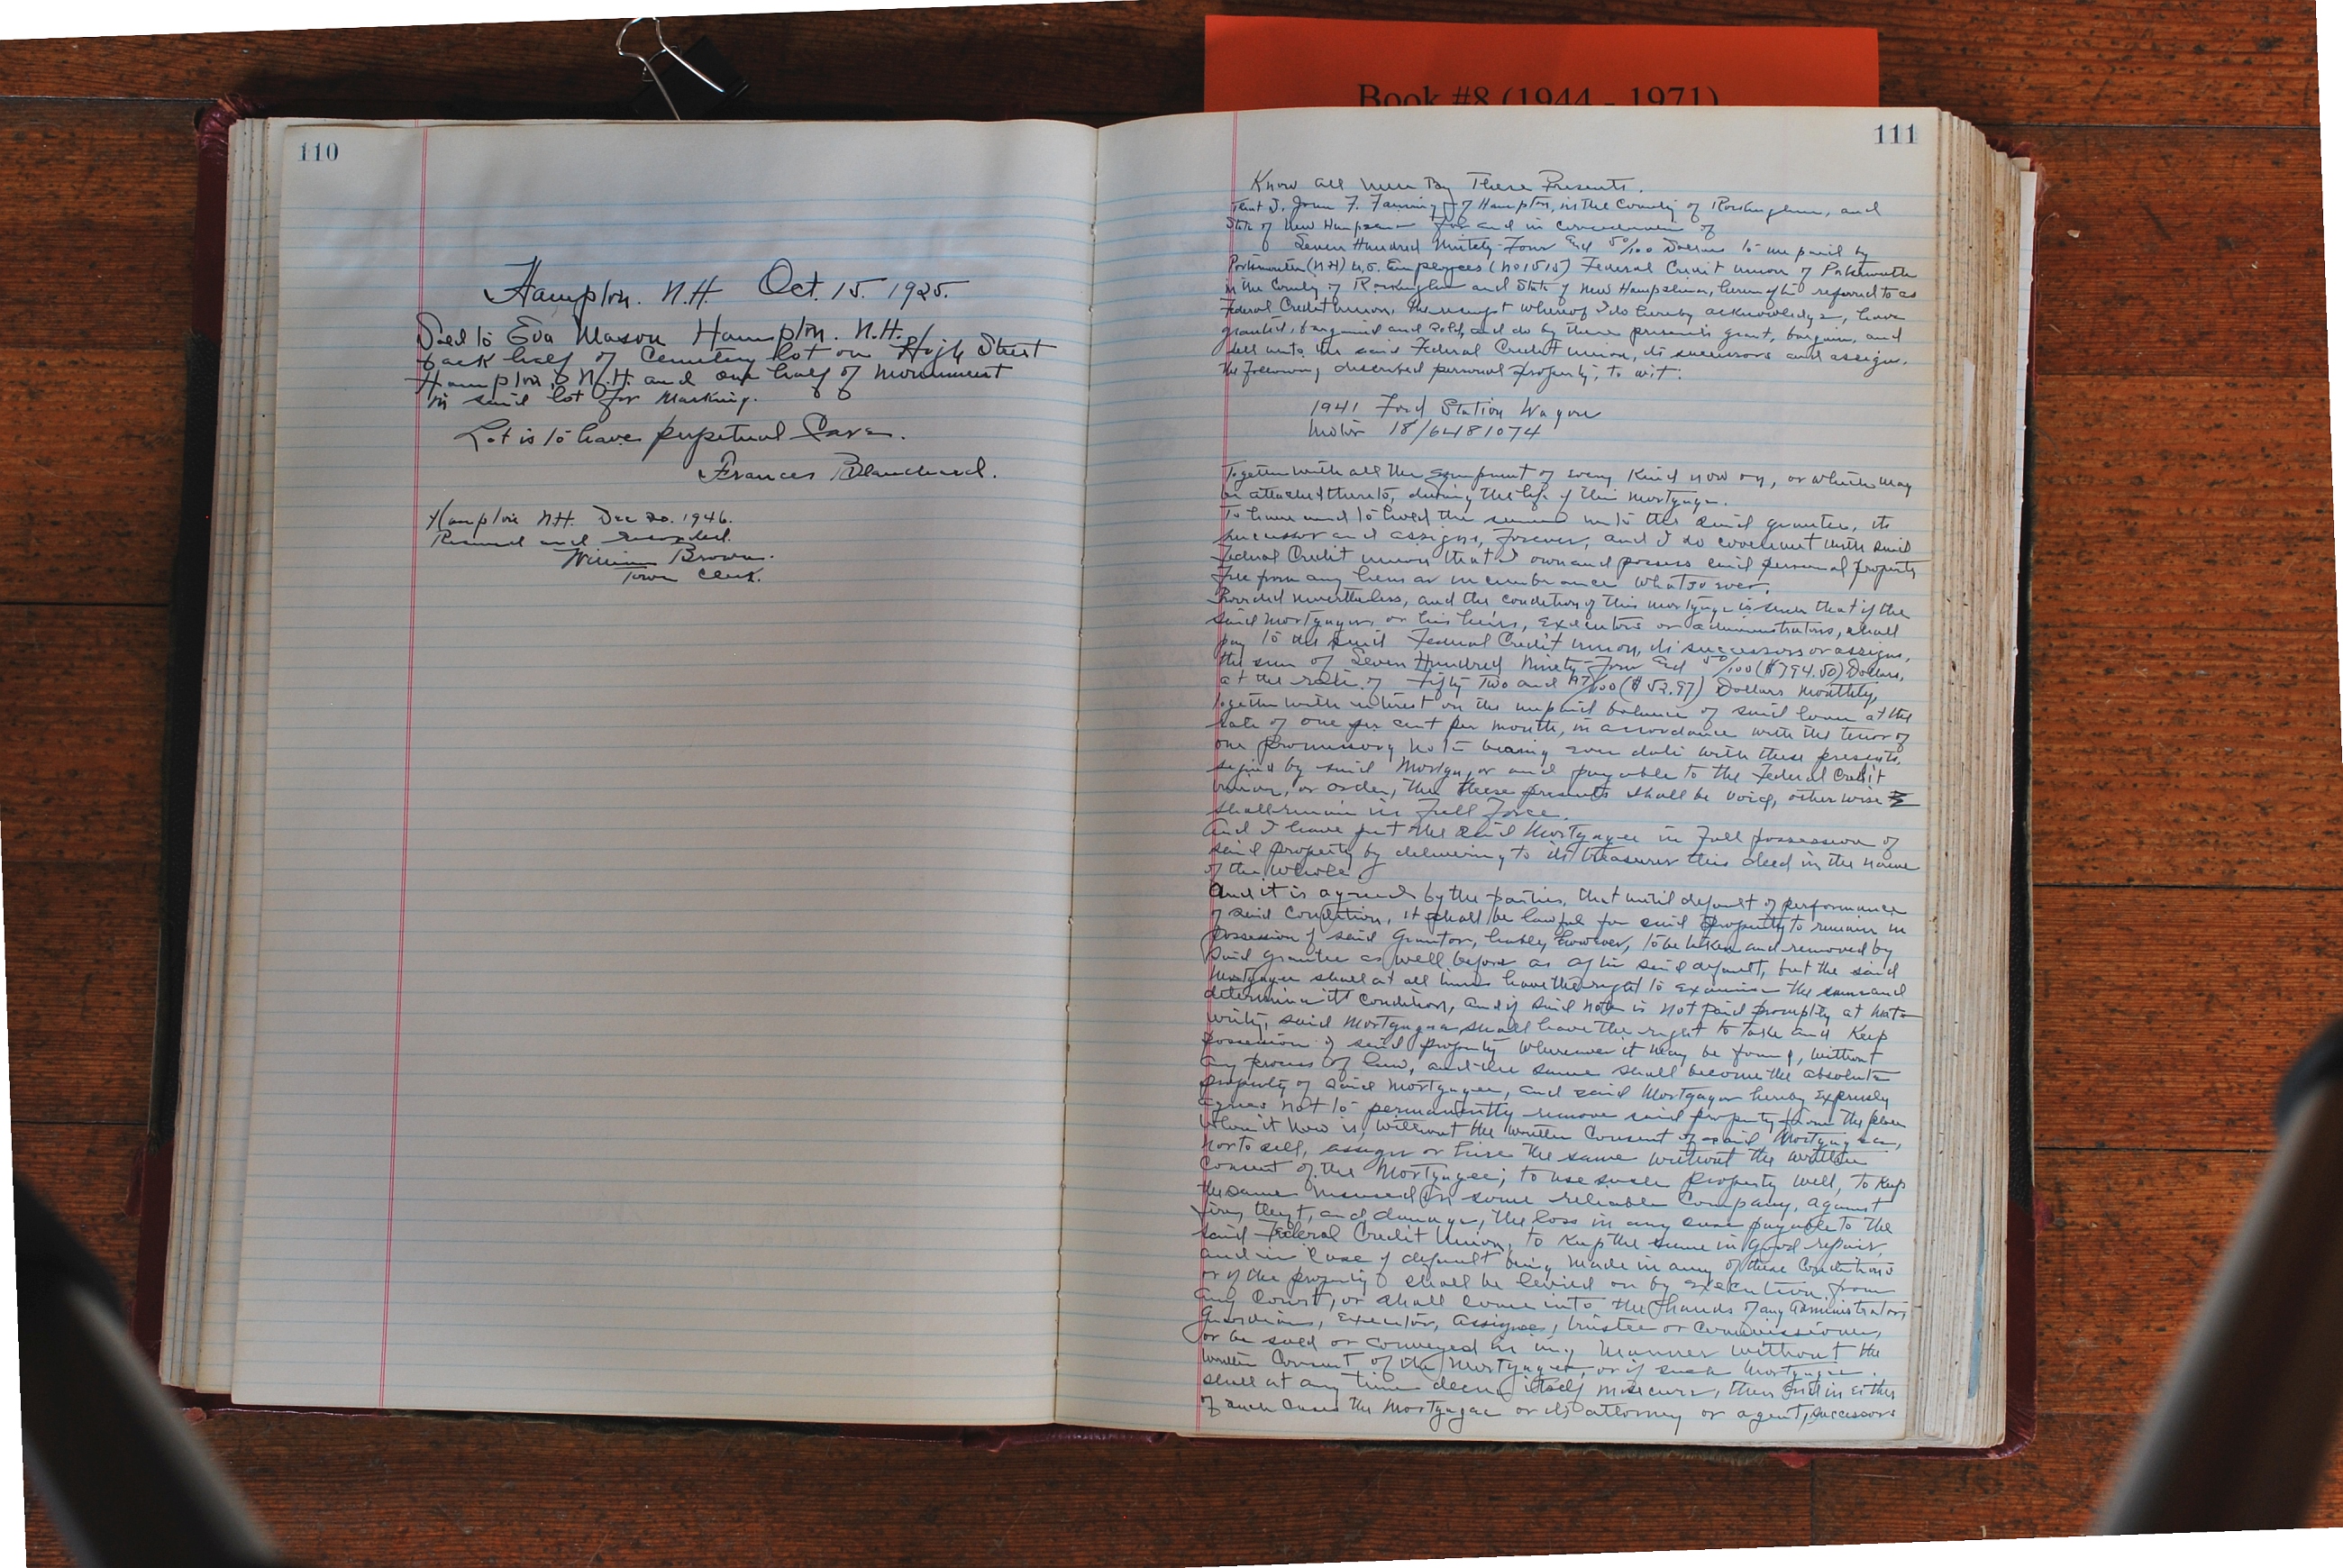 Book #8 (1944 - 1971)
110
Hampton. N.H. Oct. 15. 1925.
Sold to Eva Mason Hampton. N.H.
back half of Cemetery lot on High Street
Hampton, N.H. and one half of monument
in said lot for marking.
Lot is to have perpetual Care.
Frances Blanchard.
Hampton N.H. Dec 20. 1946.
Received and recorded.
William Brown.
Town Clerk.
111
Know all men By These Presents.
that I, John F. Fanning of Hampton, in the County of Rockingham, and
State of New Hampshire for and in consideration of
Seven Hundred Ninety-Four and 50/100 Dollars to me paid by
Portsmouth (N.H) U.S. Employees (No 1515) Federal Credit Union of Portsmouth
in the County of Rockingham and State of New Hampshire, hereinafter referred to as
Federal Credit Union, the receipt whereof I do hereby acknowledge, have
granted, bargained and sold, and do by these presents grant, bargain, and
sell unto the said Federal Credit Union, its successors and assigns,
the following described personal property, to wit:
1941 Ford Station Wagon
Motor 18/6481074
Together with all the equipment of every kind now on, or which may
be attached thereto, during the life of this mortgage.
To have and to hold the same unto the said grantee, its
successor and assigns, forever, and I do covenant with said
Federal Credit Union that I own and possess said personal property
free from any liens or incumbrance whatsoever.
Provided nevertheless, and the condition of this mortgage is such that if the
said mortgagors or his heirs, executors or administrators, shall
pay to the said Federal Credit Union, its successors or assigns,
the sum of Seven Hundred Ninety-Four and 50/100 ($794.50) Dollars,
at the rate of Fifty Two and 97/100 ($52.97) Dollars monthly,
together with interest on the unpaid balance of said loan at the
rate of one per cent per month, in accordance with the tenor of
one promissory note bearing even date with these presents,
signed by said Mortgagor and payable to the Federal Credit
Union, or order, then these presents shall be void, otherwise
shall remain in Full Force.
And I have put the said Mortgagee in Full possession of
said property by delivering to its treasurer this deed in the name
of the whole.
And it is agreed by the parties, that until default of performance
of said Condition, it shall be lawful for said property to remain in
possession of said Grantor, liable, however, to be taken and removed by
said grantee as well before as after said default, but the said
Mortgagee shall at all times have the right to examine the same and
determine its condition, and if said note is not paid promptly at mat-
urity, said Mortgagee shall have the right to take and keep
possession of said property wherever it may be found, without
any process of law, and the same shall become the absolute
property of said mortgagee, and said Mortgagor hereby expressly
agrees not to permanently remove said property from the place
where it now is, without the written consent of said Mortgagee,
nor to sell, assign or hire the same without the written
consent of the Mortgagee; to use such property well, to keep
the same insured in some reliable Company, against
fire, theft, and damage, the loss in any case payable to the
said Federal Credit Union, to keep the same in good repair,
and in case of default being made in any of these Conditions
or if the property shall be levied on by execution from
any Court, or shall come into the hands of any administrators,
Guardians, Executor, Assignee, trustee or Commissioner,
or be sold or conveyed in any manner without the
written Consent of the Mortgagee, or if such mortgagee
shall at any time deem itself insecure, then and in either
of such cases the Mortgagee or its attorney or agent, successors